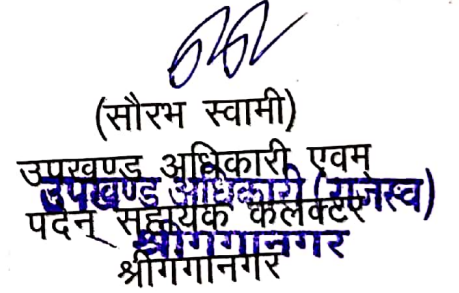 (सौरभ स्वामी)
उपखण्ड अधिकारी एवम्
उपखण्ड अधिकारी (राजस्व)
पदेन् सहायक कलेक्टर
श्रीगंगानगर
श्रीगंगानगर